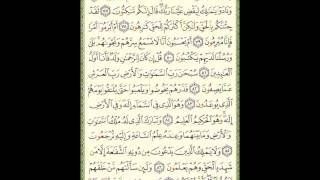 وَنَادَوْا۟ يَٰمَٰلِكُ لِيَقْضِ عَلَيْنَا رَبُّكَ قَالَ إِنَّكُم مَّٰكِثُونَ ٧٧ لَقَدْ
جِئْنَٰكُم بِٱلْحَقِّ وَلَٰكِنَّ أَكْثَرَكُمْ لِلْحَقِّ كَٰرِهُونَ ٧٨ أَمْ أَبْرَمُوٓا۟ أَمْرًا
فَإِنَّا مُبْرِمُونَ ٧٩ أَمْ يَحْسَبُونَ أَنَّا لَا نَسْمَعُ سِرَّهُمْ وَنَجْوَىٰهُم بَلَىٰ
وَرُسُلُنَا لَدَيْهِمْ يَكْتُبُونَ ٨٠ قُلْ إِن كَانَ لِلرَّحْمَٰنِ وَلَدٌ فَأَنَا۠ أَوَّلُ
ٱلْعَٰبِدِينَ ٨١ سُبْحَٰنَ رَبِّ ٱلسَّمَٰوَٰتِ وَٱلْأَرْضِ رَبِّ ٱلْعَرْشِ
عَمَّا يَصِفُونَ ٨٢ فَذَرْهُمْ يَخُوضُوا۟ وَيَلْعَبُوا۟ حَتَّىٰ يُلَٰقُوا۟ يَوْمَهُمُ
ٱلَّذِى يُوعَدُونَ ٨٣ وَهُوَ ٱلَّذِى فِى ٱلسَّمَآءِ إِلَٰهٌ وَفِى ٱلْأَرْضِ إِلَٰهٌ
وَهُوَ ٱلْحَكِيمُ ٱلْعَلِيمُ ٨٤ وَتَبَارَكَ ٱلَّذِى لَهُۥ مُلْكُ ٱلسَّمَٰوَٰتِ
وَٱلْأَرْضِ وَمَا بَيْنَهُمَا وَعِندَهُۥ عِلْمُ ٱلسَّاعَةِ وَإِلَيْهِ تُرْجَعُونَ
٨٥ وَلَا يَمْلِكُ ٱلَّذِينَ يَدْعُونَ مِن دُونِهِ ٱلشَّفَٰعَةَ إِلَّا مَن
شَهِدَ بِٱلْحَقِّ وَهُمْ يَعْلَمُونَ ٨٦ وَلَئِن سَأَلْتَهُم مَّنْ خَلَقَهُمْ